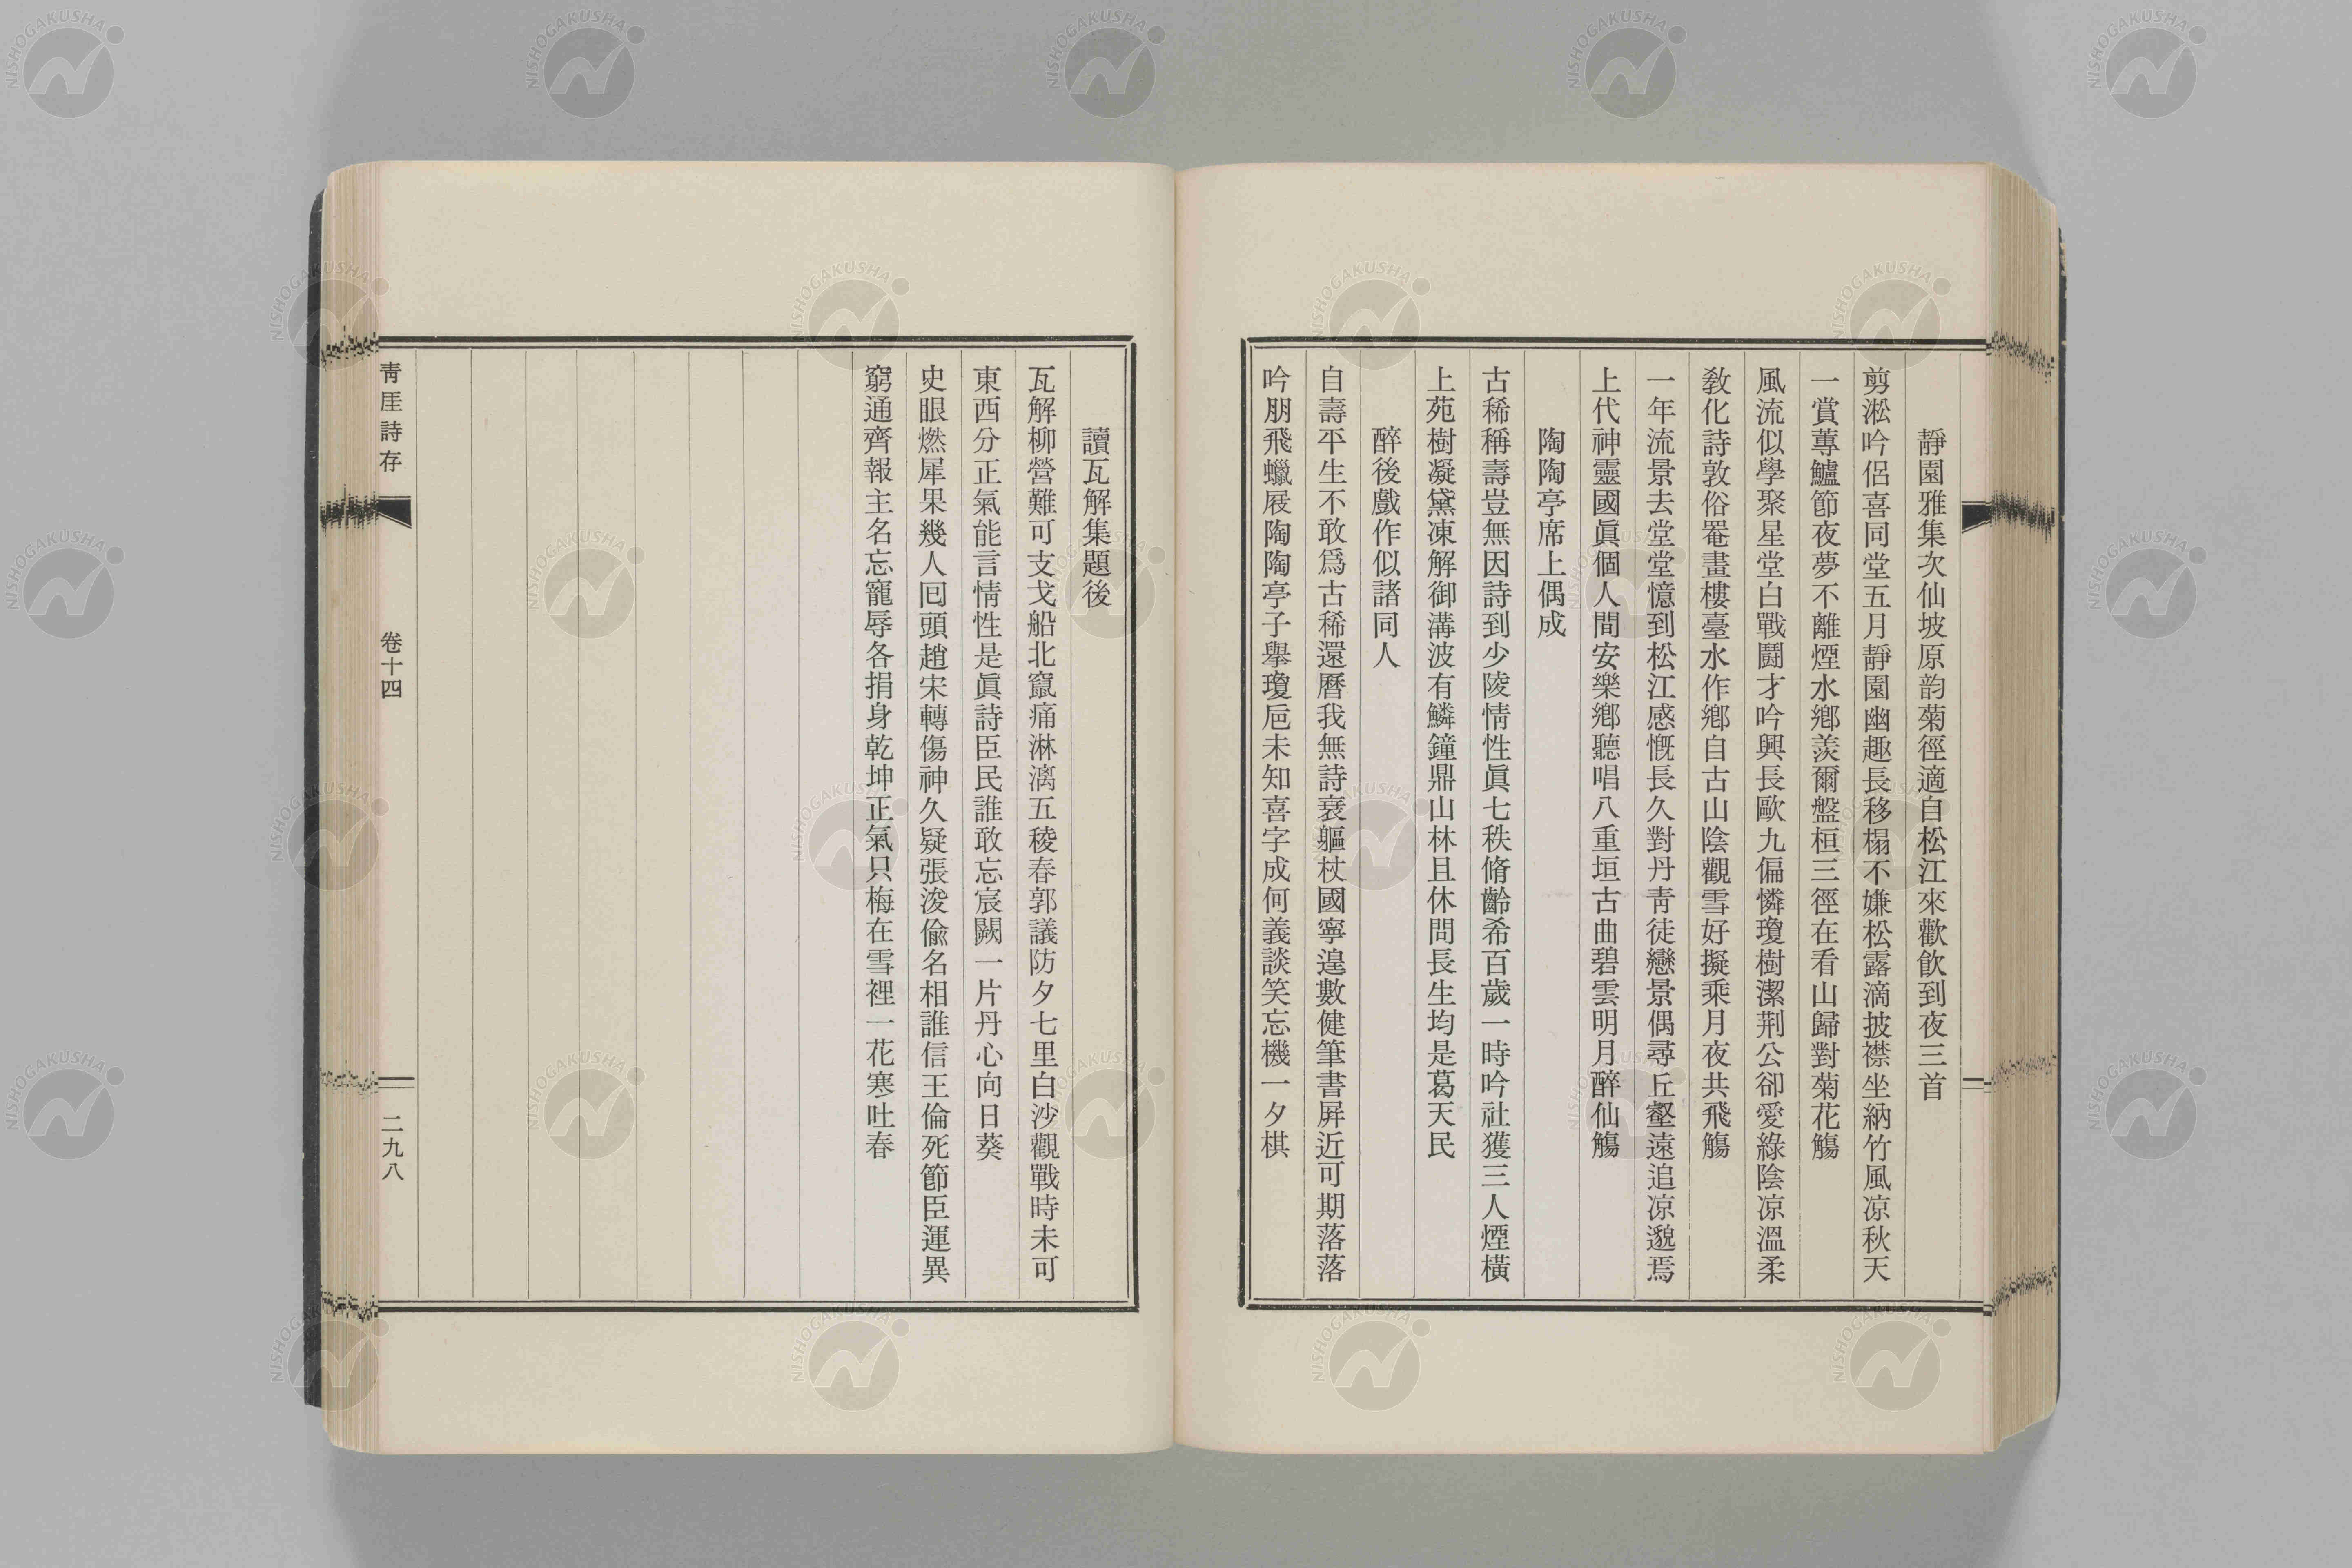 靜園雅集次仙坡原韵菊徑適自松江來歡飮到夜三首
剪淞吟侶喜同堂五月靜園幽趣長移榻不嫌松露滴披襟坐納竹風凉秋天
一賞蓴鱸節夜夢不離煙水鄕羨爾盤桓三徑在看山歸對菊花觴
風流似學聚星堂白戰鬪才吟興長歐九偏憐瓊樹潔荆公卻愛綠陰凉溫柔
敎化詩敦俗罨畫樓臺水作鄕自古山陰觀雪好擬乘月夜共飛觴
一年流景去堂堂憶到松江感慨長久對丹靑徒戀景偶尋丘壑遠追凉邈焉
上代神靈國眞個人間安樂鄕聽唱八重垣古曲碧雲明月醉仙觴
陶陶亭席上偶成
古稀稱壽豈無因詩到少陵情性眞七秩脩齡希百歲一時吟社獲三人煙橫
上苑樹凝黛凍解御溝波有鱗鐘鼎山林且休問長生均是葛天民
醉後戲作似諸同人
自壽平生不敢爲古稀還曆我無詩衰軀杖國寧遑數健筆書屛近可期落落
吟朋飛蠟屐陶陶亭子擧瓊巵未知喜字成何義談笑忘機一夕棋
讀瓦解集題後
瓦解柳營難可支戈船北竄痛淋漓五稜春郭議防夕七里白沙觀戰時未可
東西分正氣能言情性是眞詩臣民誰敢忘宸闕一片丹心向日葵
史眼燃犀果幾人回頭趙宋轉傷神久疑張浚偸名相誰信王倫死節臣運異
窮通齊報主名忘寵辱各捐身乾坤正氣只梅在雪裡一花寒吐春
靑厓詩存
卷十四
二九八
NISHOGAKUSHA